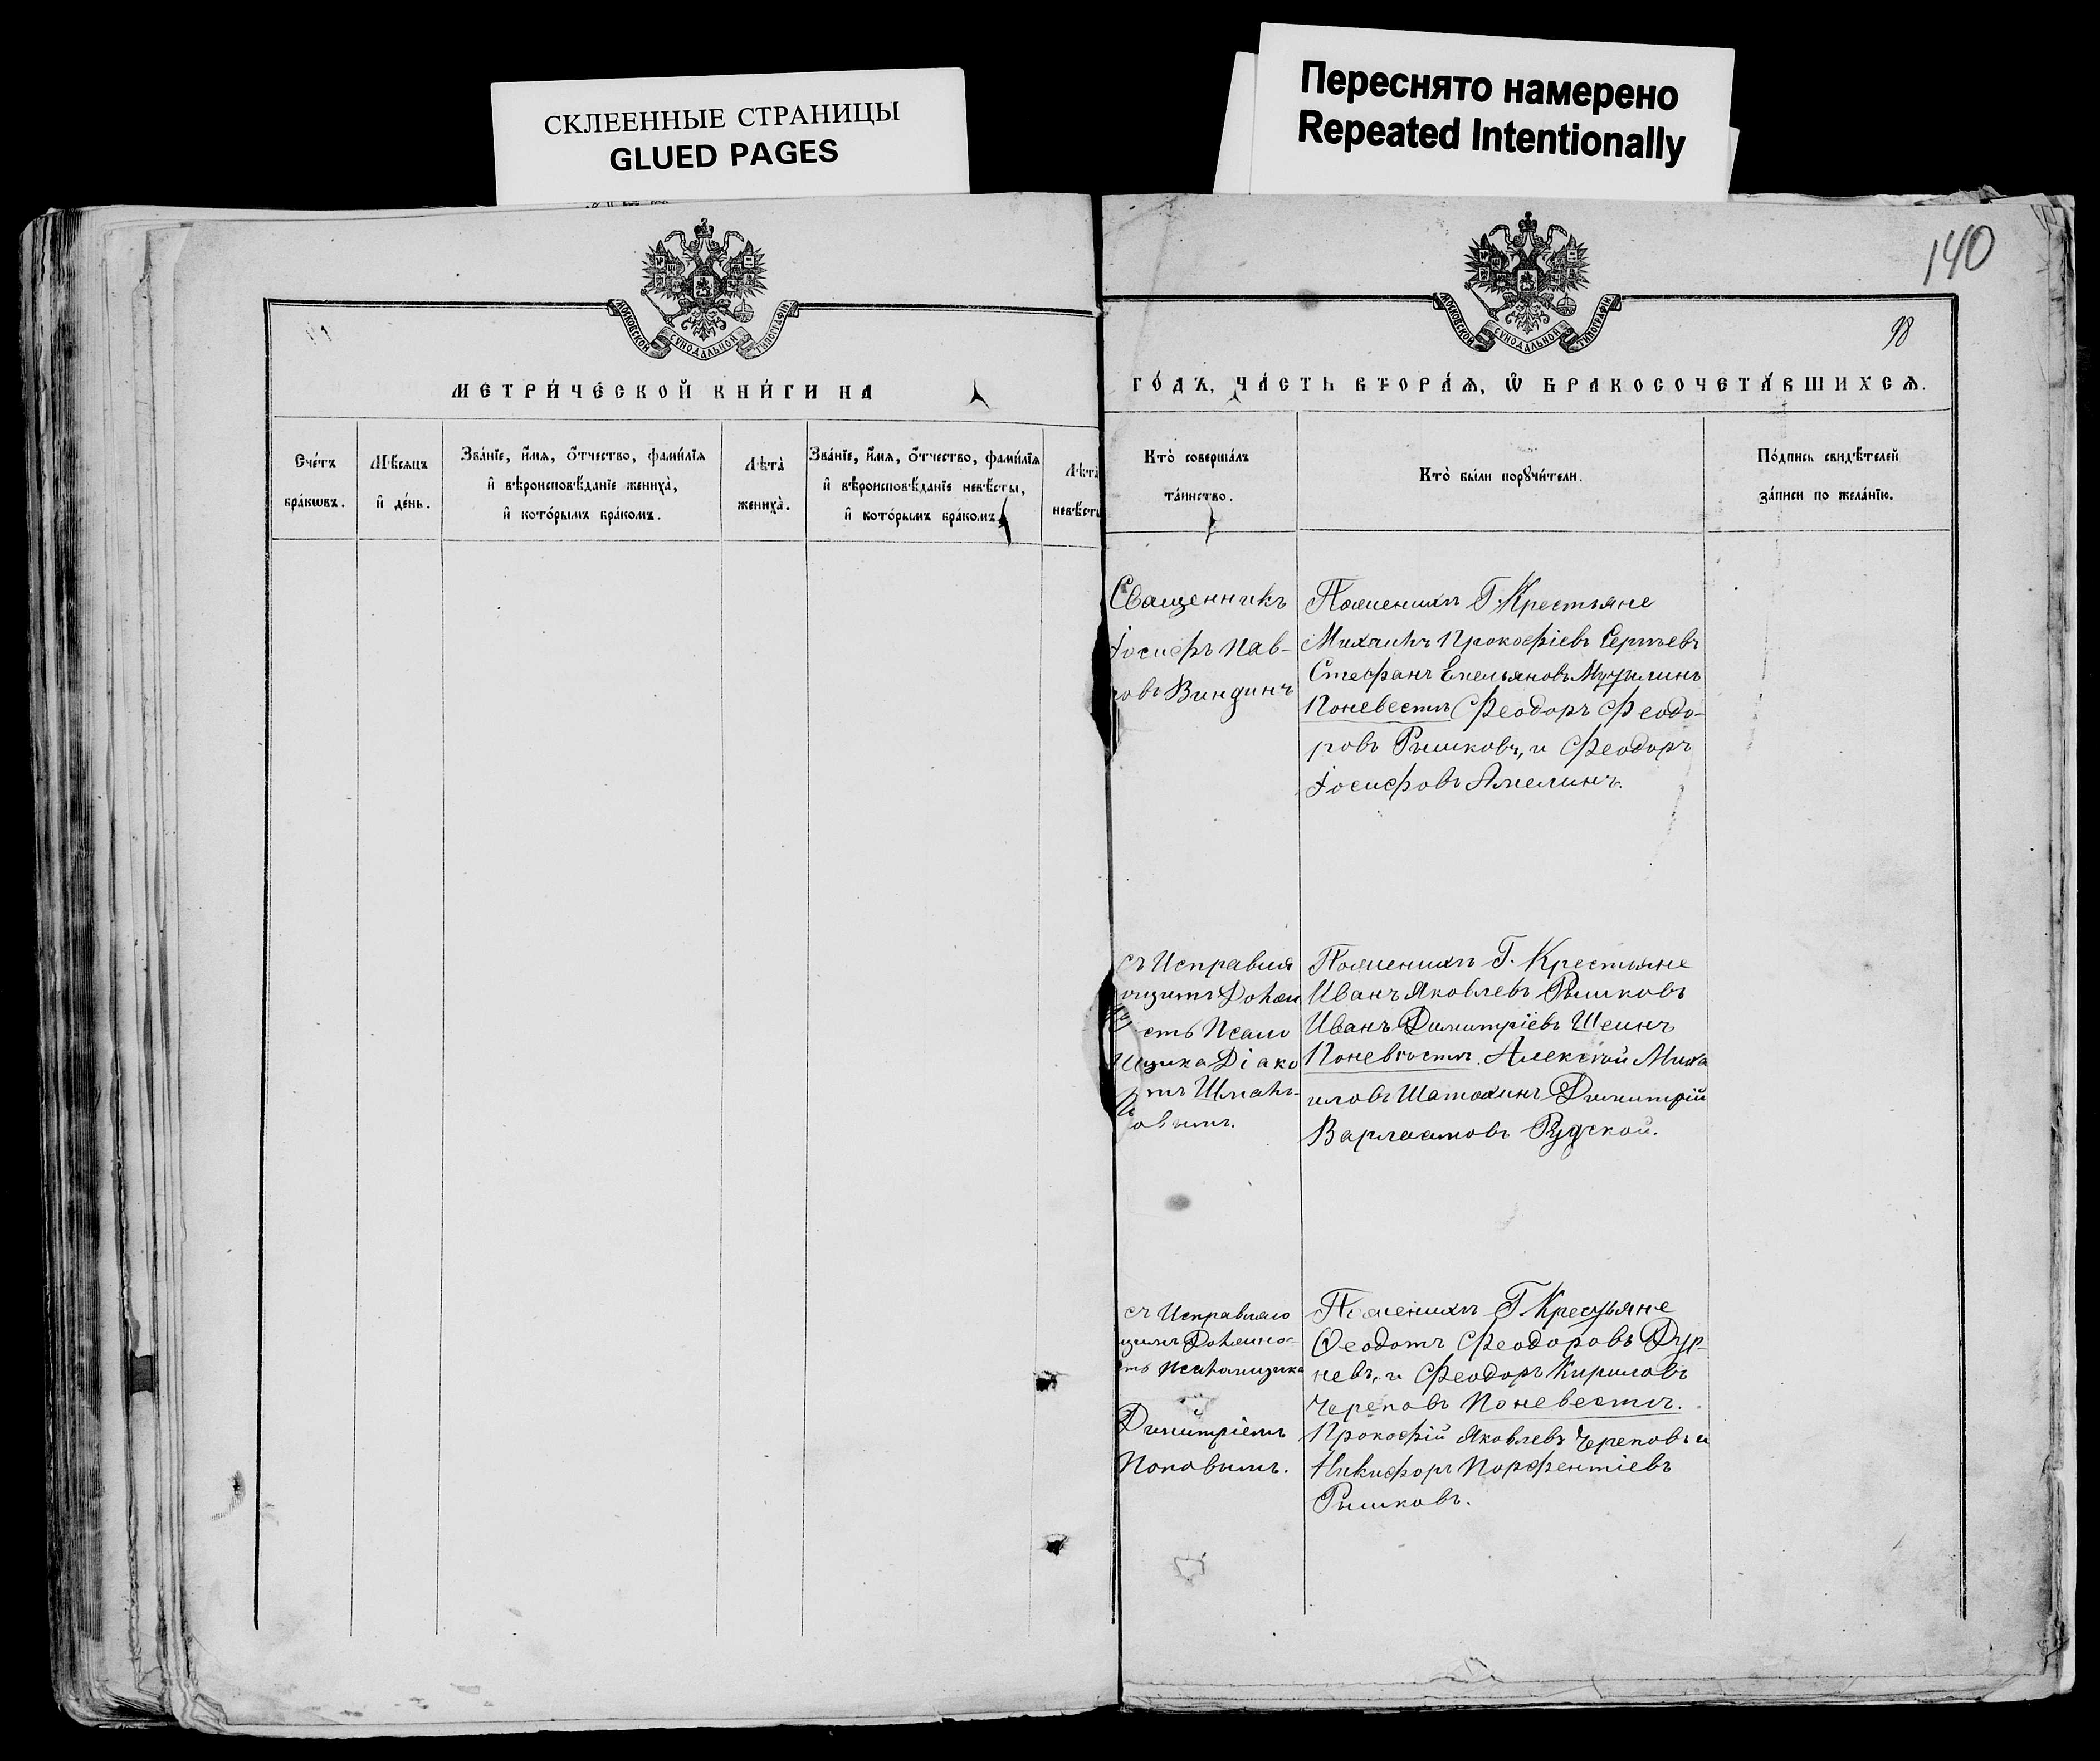 СКЛЕЕННЫЕ СТРАНИЦЫ
GLUED PAGES
Переснято намерено
Repeated Intentionally
140
98
МОСКОВСКОЙ СѴНОДАЛЬНОЙ ТИПОГРАФІИ
МОСКОВСКОЙ СѴНОДАЛЬНОЙ ТИПОГРАФІИ
МЕТРИ́ЧЕСКОЙ КНИ́ГИ НА
ГО́ДЪ, ЧА́СТЬ ВТОРА́Ѧ, Ѽ БРАКОСОЧЕТА́ВШИХСѦ.
Сче́тъ
бра́кѡвъ.
Мѣ́сяцъ
и҆ де́нь.
Зва́нїе, и҆́мя, ѻ҆́тчество, фами́лїя
и҆ вѣроисповѣ́данїе жениха̀,
и҆ кото́рымъ бра́комъ.
Лѣта̀
жениха̀.
Зва́нїе, и҆́мя, ѻ҆́тчество, фами́лїя
и҆ вѣроисповѣ́данїе невѣ́сты,
и҆ кото́рымъ бра́комъ
Лѣта̀
невѣ́сты
Кто̀ соверша́лъ
та́инство.
Кто̀ бы́ли порꙋчи́тели.
По́дпись свидѣ́телей
за́писи по жела́нїю.
Священникъ
Іосифъ Пав-
ровъ Виндинъ
Поженихѣ Г. Крестьяне
Михаилъ Прокофіевъ Сергѣевъ
Стефанъ Емельяновъ
Поневестѣ Феодоръ Феодо-
ровъ Рышковъ, и Феодоръ
Іосифовъ Амелинъ.
съ Исправля
ющимъ Должн
сть Псало
мщика Діако
Шмаль-
овымъ.
Поженихѣ Г. Крестьяне
Иванъ Яковлевъ Рышковъ
Иванъ Димитріевъ Шеинъ
Поневѣстѣ. Алексѣй Миха
иловъ Шатохинъ Димитрій
Варлаамовъ Рудской.
съ Исправляю
щимъ Должно-
сть Псаломщика
Димитріемъ
Поповымъ.
Поженихѣ Г. Крестьяне
Ѳеодотъ Феодоровъ Дур-
невъ, и Феодоръ Кириловъ
Череповъ Поневестѣ.
Прокофій Яковлевъ Череповъ и
Никифоръ Порфентіевъ
Рышковъ.